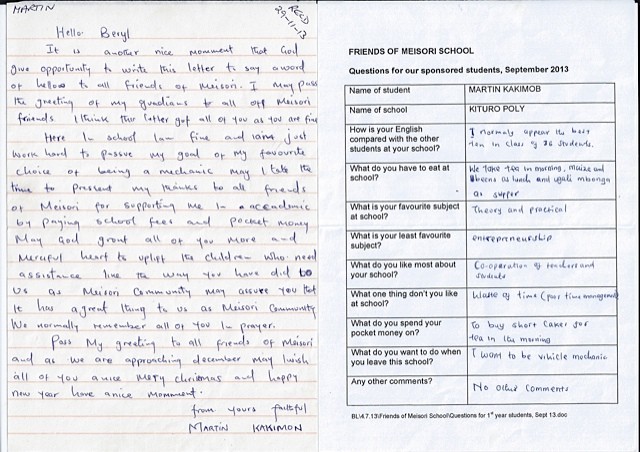 MARTIN
RECD
29-11-13
Hello Beryl
It is another nice momment that God
give opportunity to write this letter to say a word
of hellow to all friends of Meisori. I may pass
the greeting of my guardians to all off Meisori
friends I think this letter got all of you as you are fine
Here In school Iam fine and iam just
work hard to passue my goal of my favourite
choice of being a mechanic may I take the
time to Present my thanks to all friends
of Meisori for supporting me in accademic
by paying school fees and pocket money
May God grant all of you more and
Merciful heart to uplift the children who need
assistance like the way you have did to
us as Meisori Community may assure you that
It has a great thing to us as Meisori Community
We normally remember all of you In prayer.
Pass My greeting to all friends of Meisori
and as we are approaching december may I wish
all of you a nice mery christmas and happy
new year have a nice momment.
from yours faithful
MARTIN KAKIMON
FRIENDS OF MEISORI SCHOOL
Questions for our sponsored students, September 2013
Name of student MARTIN KAKIMOB
Name of school KITURO POLY
How is your English compared with the other students at your school? I normaly appear the best ten in class of 36 students.
What do you have to eat at school? We take tea in morning, maize and beens as lunch and ugali mboga as supper
What is your favourite subject at school? Theory and practical
What is your least favourite subject? entrepreneurship
What do you like most about your school? Co-operation of teachers and students
What one thing don't you like at school? Waste of time (poor time management
What do you spend your pocket money on? To buy short cakes for tea in the morning
What do you want to do when you leave this school? I want to be vihicle mechanic
Any other comments? No other comments
BL\4.7.13\Friends of Meisori School\Questions for 1st year students, Sept 13.doc